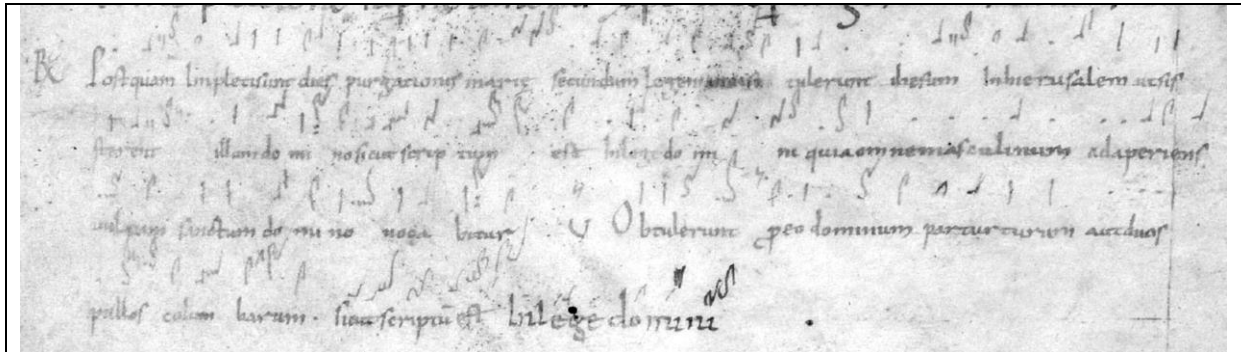 R Postquam Impleti sunt dies purgationis marię secundum legem tulerunt ihesum Inhierusalem utsis
terent illum do mi no sicut scrip tum est Inlege do mi ni quia omne masculinum adaperiens
uulvam sanctum do mi no uoca bitur V Obtulerunt peo dominum par turturum aut duos
pullos colum barum sicut scriptū est Inlege domini